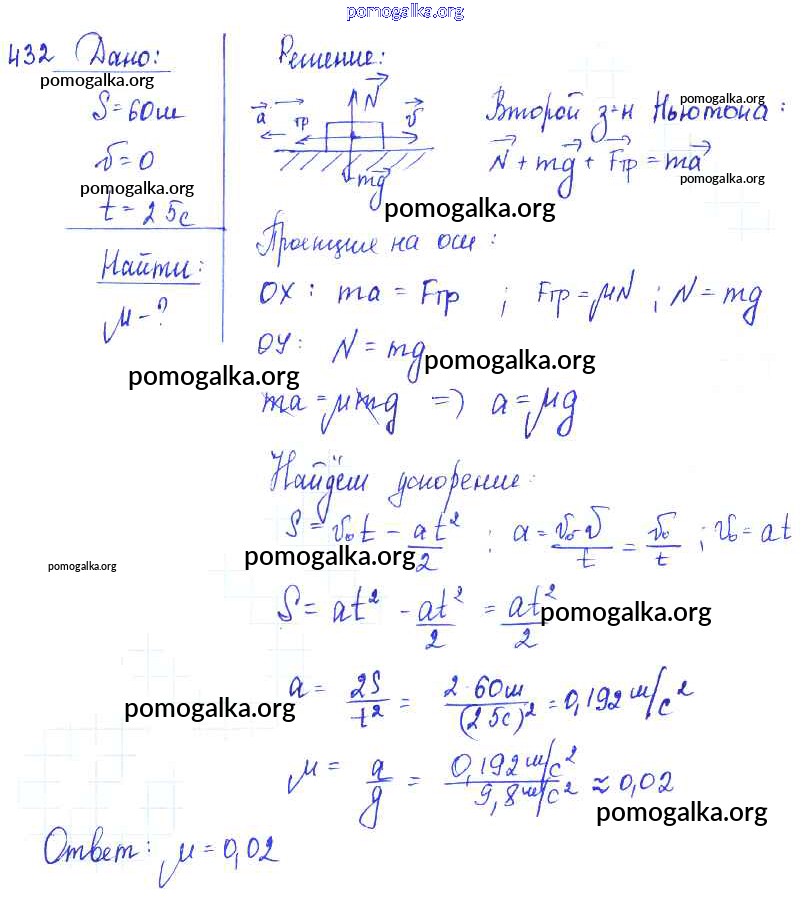 pomogalka.org
432 Дано:
pomogalka.org
S=60м
v=0
pomogalka.org
t=25c
Найти:
μ-?
pomogalka.org
Решение:
a тр N v
mg
pomogalka.org
Второй з-н Ньютона:
pomogalka.org
N + mg + Fтр = ma
pomogalka.org
Проекции на оси:
OX: ma = Fтр ; Fтр = μN ; N = mg
OY: N = mg
pomogalka.org
ma = μmg => a = μg
Найдём ускорение:
S = v₀t - at²/2 ; a = v₀-v/t = v₀/t ; v₀ = at
pomogalka.org
pomogalka.org
S = at² - at²/2 = at²/2
pomogalka.org
a = 2S/t² = 2·60м/(25c)² = 0,192 м/c²
pomogalka.org
μ = a/g = 0,192 м/c²/9,8 м/c² ≈ 0,02
pomogalka.org
Ответ: μ = 0,02